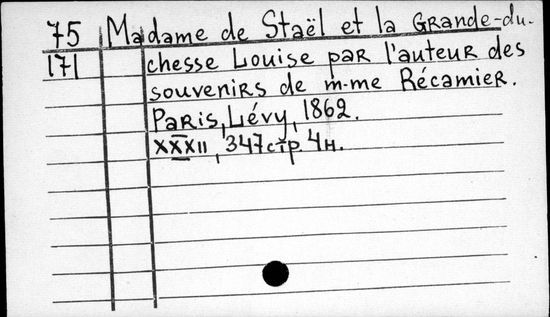 75 Madame de Staël et la Grande-du-
171 chesse Louise par l'auteur des
souvenirs de m-me Récamier.
Paris, Lévy, 1862.
XXXII, 347 стр. 4н.